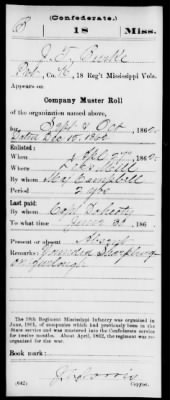 (Confederate.)
B 18 Miss.
Pvt., Co. K, 18 Reg't Mississippi Vols.
Appears on
Company Muster Roll
of the organization named above,
for Sept & Oct, 186
dated Dec 18, 186
Enlisted:
When 27, 186
Where
By whom Campbell
Period 2 yrs
Last paid:
By whom Capt. Doherty
To what time June 30, 186
Present or absent Absent
Remarks: Wounded Sharpsburg
on furlough
The 18th Regiment Mississippi Infantry was organized in
June, 1861, of companies which had previously been in the
State service and was mustered into the Confederate service
for twelve months. About April, 1862, the regiment was re-
organized for the war.
(642) Copyist.